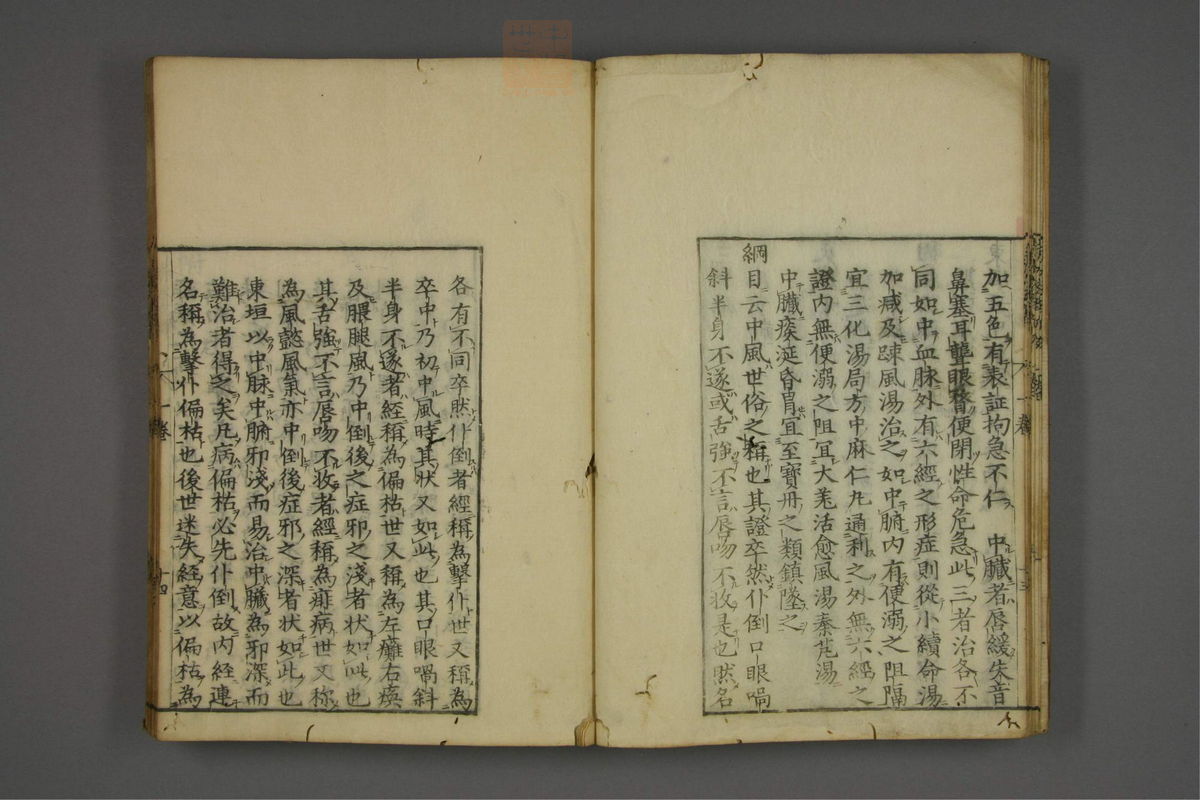 加五色有表証拘急不仁　中臓者唇緩失音
鼻塞耳聾眼瞀便閉性命危急此三者治各不
同如中血脉外有六經之形症則從小續命湯
加减及踈風湯治之如中腑内有便溺之阻隔
宜三化湯局方中麻仁丸通利之外無六經之
證内無便溺之阻宜大羗活愈風湯秦芃湯
中臓痰涎昏冐宜至寶丹之類鎮墜之
綱目云中風世俗之稱也其證卒然仆倒口眼喎
斜半身不遂或舌強不言唇吻不收是也然名
各有不同卒然仆倒者經稱為擊仆世又稱為
卒中乃初中風時其状又如此也其口眼喎斜
半身不遂者經稱為偏枯世又稱為左癱右瘓
及腲腿風乃中倒後之症邪之淺者状如此也
其舌強不言唇吻不收者經稱為痱病世又称
為風懿風氣亦中倒後症邪之深者状如此也
東垣以中脉中腑邪淺而易治中臓為邪深而
難治者得之矣凡病偏枯必先仆倒故内經連
名稱為擊仆偏枯也後世迷失經意以偏枯為
一卷
十四